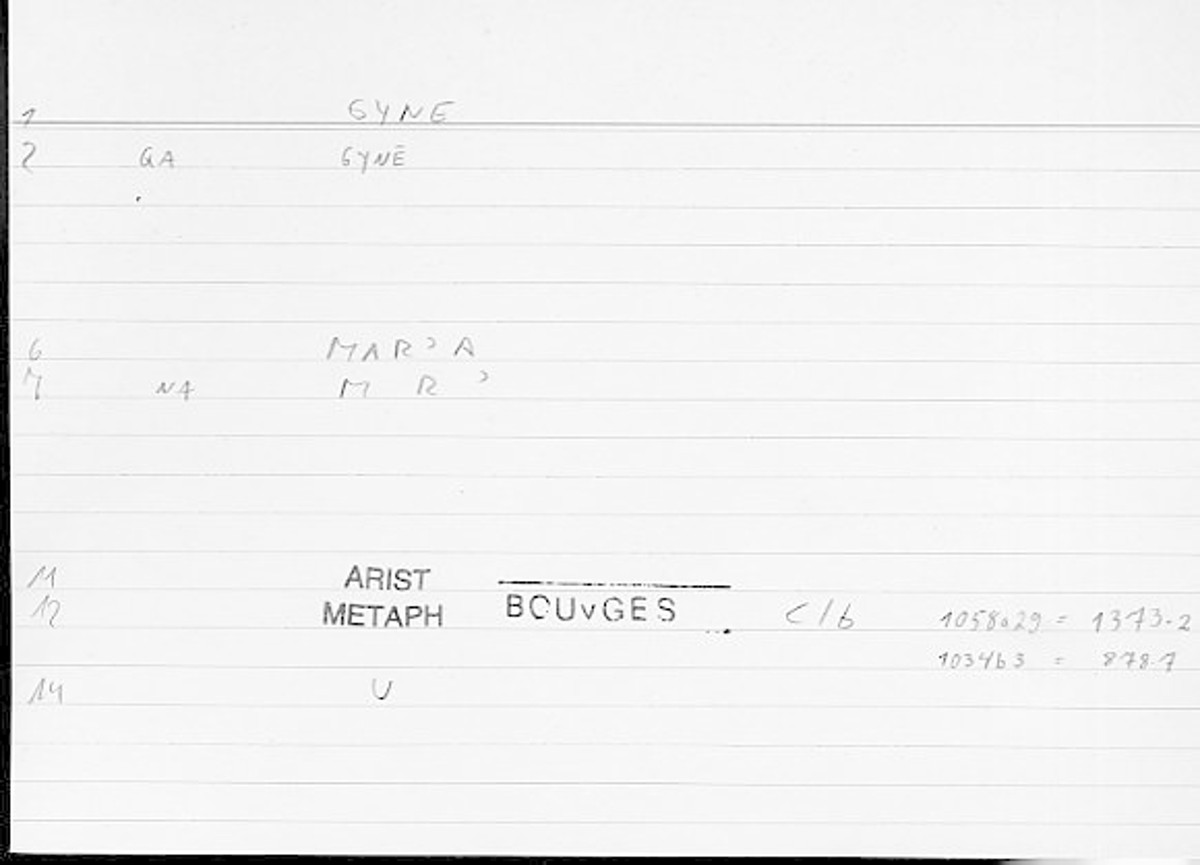 1 GYNE
2 GA GYNĒ
6 MARʾA
7 NA M R ʾ
11 ARIST
12 METAPH BOUvGES C/b 1058a29 = 1373.2
1034b3 = 878.7
14 U